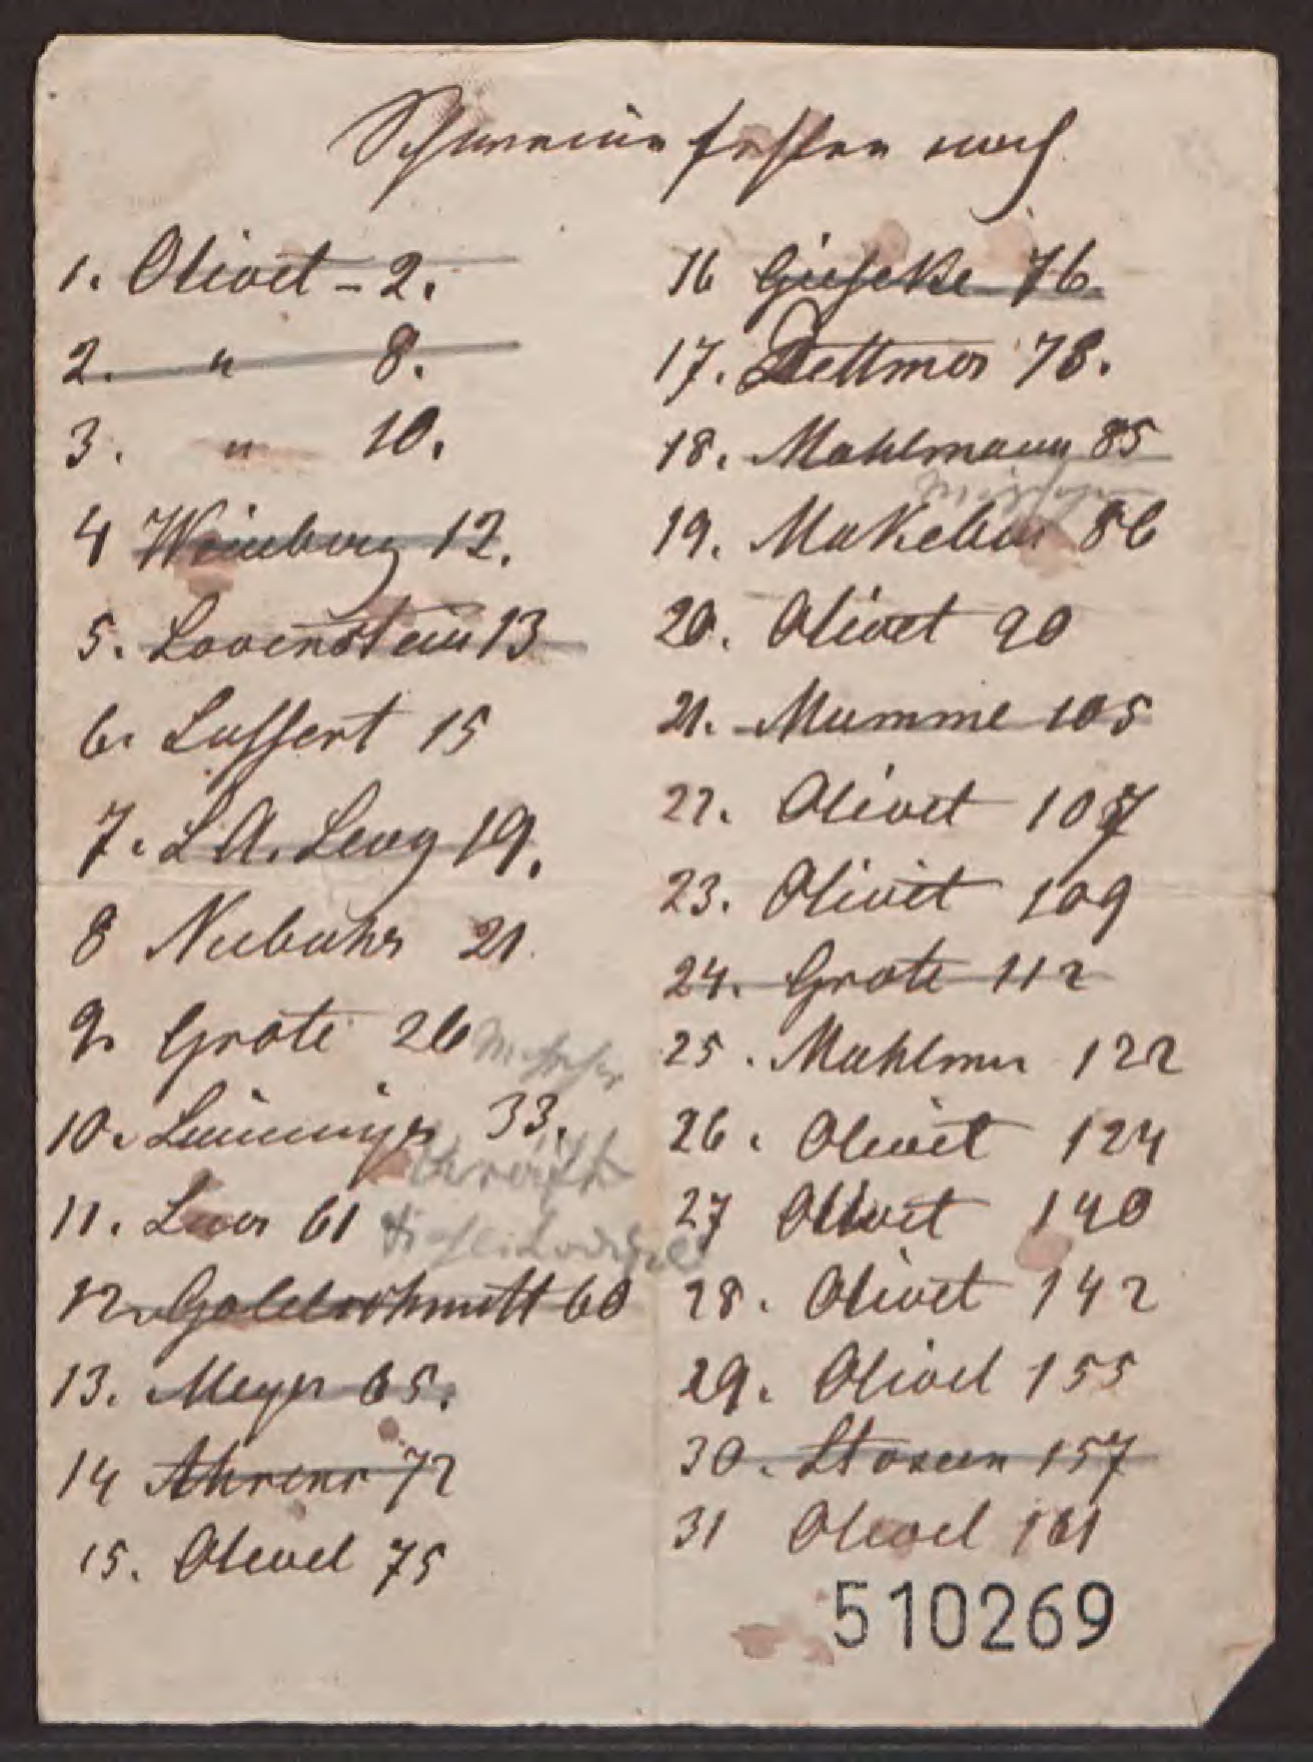 Schweine fehlen noch
1. Olivet - 2.
2. " 8.
3. " 10.
4 Weinberg 12.
5. Lovenstein 13
6. Lussert 15
7. L. A. Levy 19.
8 Neubuhr 21.
9. Grote 26
10. 33.
11. Luer 61
12. Goldschmitt 60
13. Meyer 65.
14 Ahrens 72
15. Olivet 75
16 Gieseke 76.
17. Dettmer 78.
18. Mahlmann 85
19. 86
20. Olivet 90
21. Mumme 105
22. Olivet 107
23. Olivet 109
24. Grote 112
25. Mahlmn 122
26. Olivet 124
27 Olivet 140
28. Olivet 142
29. Olivet 155
30. 157
31 Olivet 161
510269